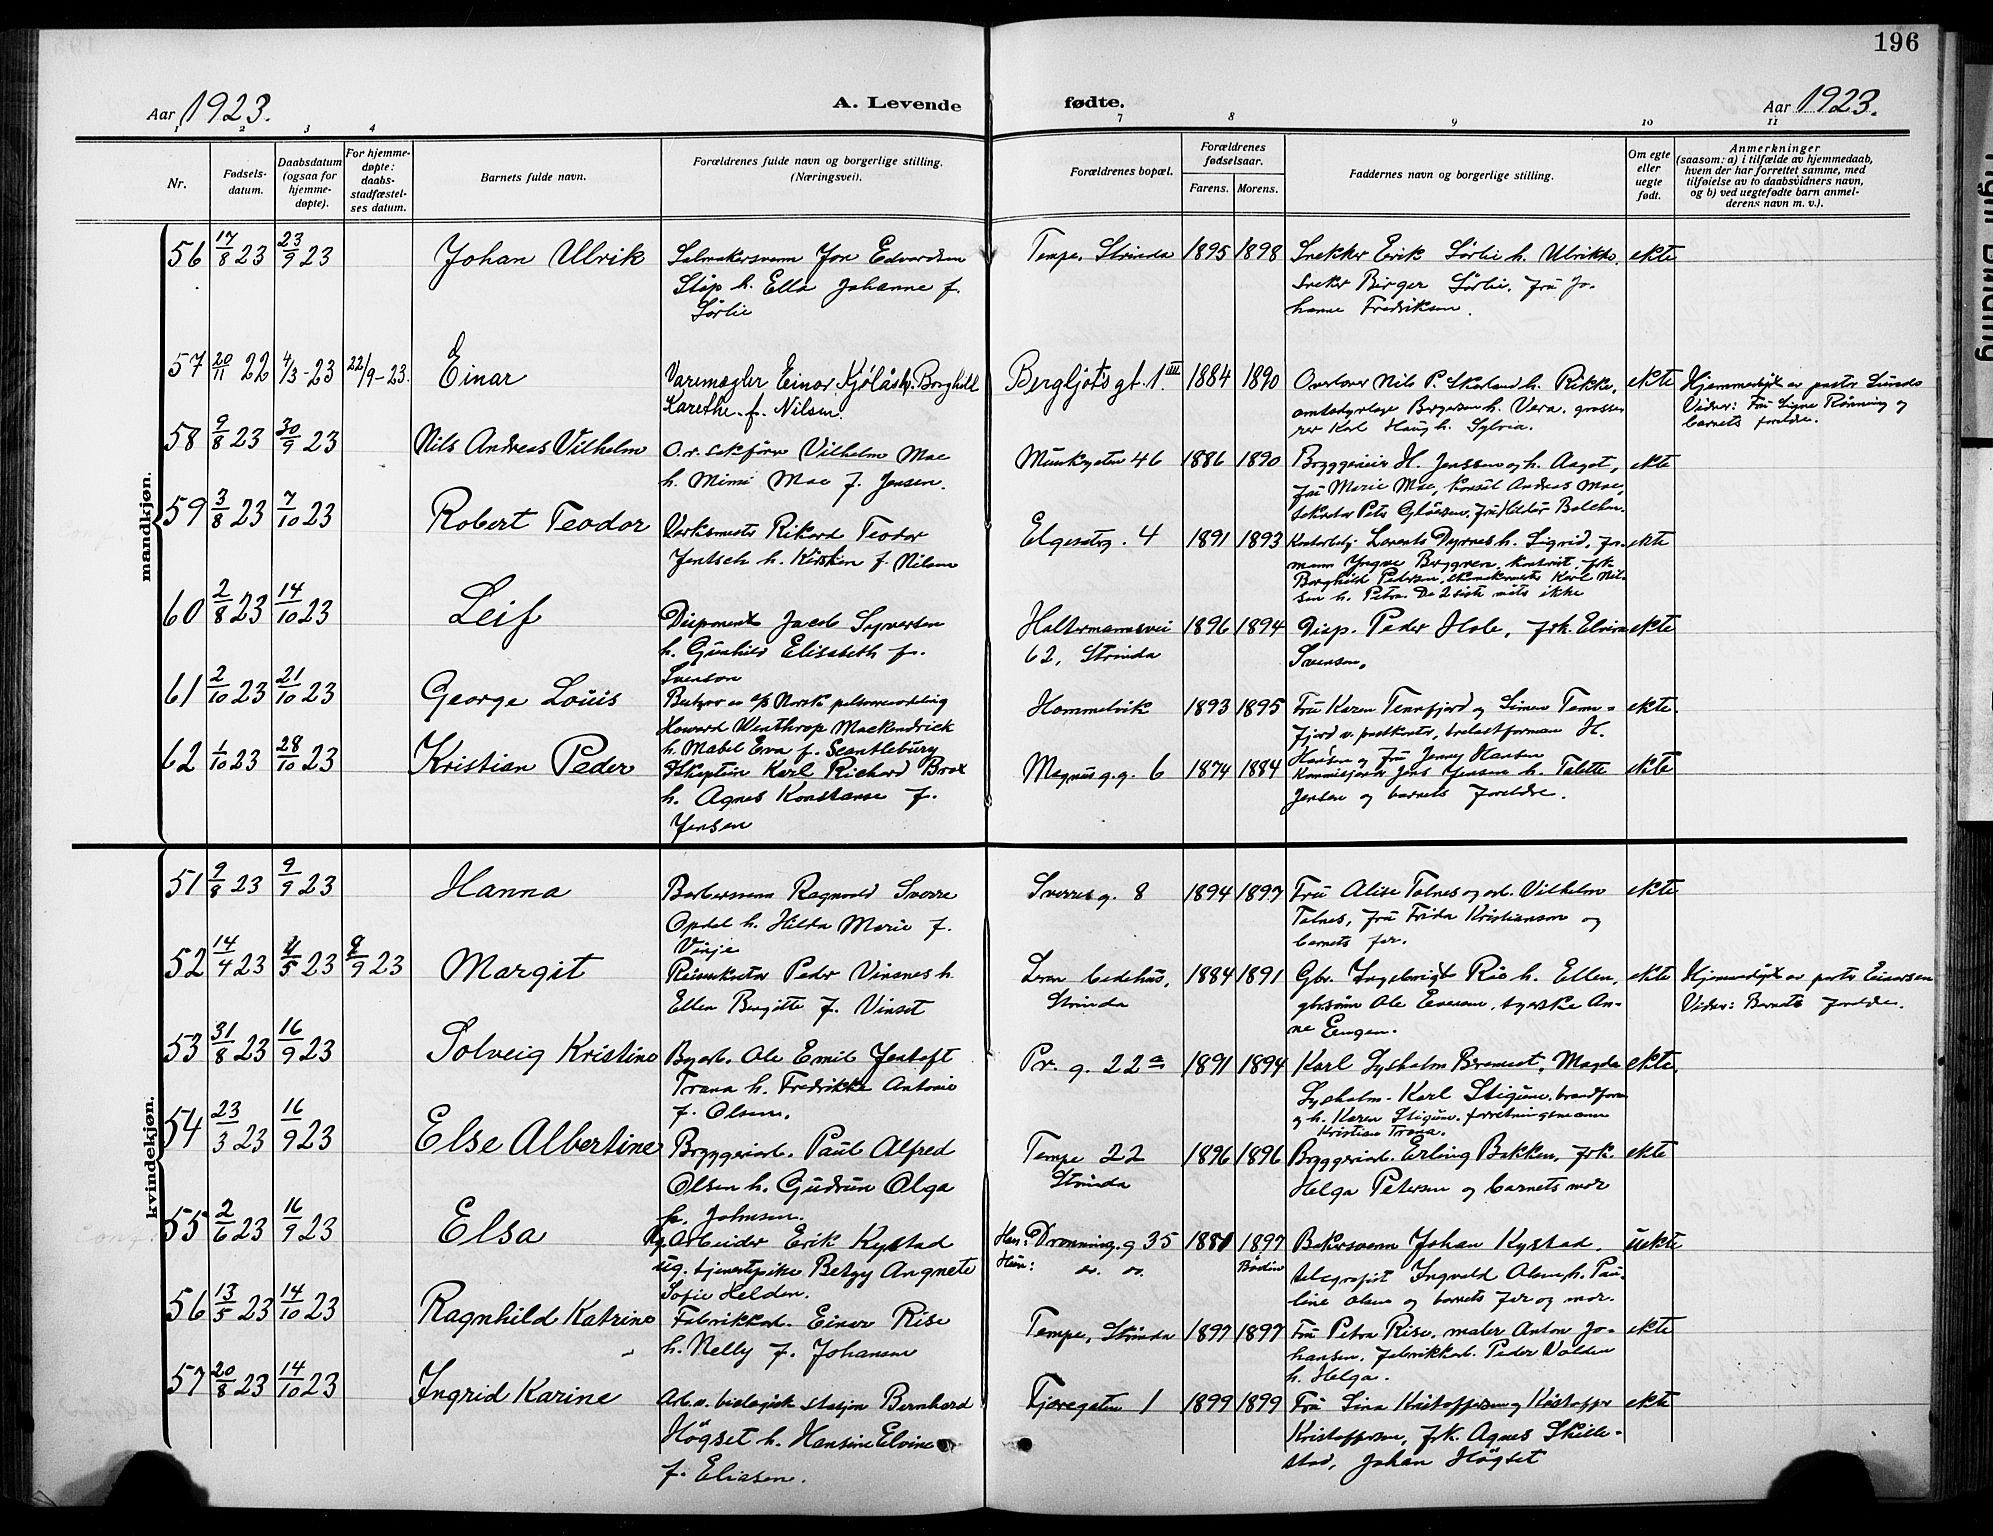 196
Aar 1923. A. Levende fødte. Aar 1923.
1 2 3 4 7 8 9 10 11
Nr.
Fødsels-
datum.
Daabsdatum
(ogsaa for
hjemme-
døpte).
For hjemme-
døpte:
daabs-
stadfæstel-
ses datum.
Barnets fulde navn.
Forældrenes fulde navn og borgerlige stilling.
(Næringsvei).
Forældrenes bopæl.
Forældrenes
fødselsaar.
Farens. Morens.
Faddernes navn og borgerlige stilling.
Om egte
eller
uegte
født.
Anmerkninger
(saasom: a) i tilfælde av hjemmedaab,
hvem der har forrettet samme, med
tilføielse av to daabsvidners navn,
og b) ved uegtefødte barn anmel-
derens navn m. v.).
mandkjøn.
56 17/8 23 23/9 23 Johan Ulrik
Salmakersvenn Jon Edvardsen
Støp h. Ella Johanne f.
Sørlie
Tempe, Strinda 1895 1898
Snekker Erik Sørlie h. Ulrikke,
Sneker Birger Sørlie, fru Jo-
hanne Fredriksen.
ekte
57 20/11 22 4/3-23 22/9-23. Einar
Varemægler Einar Kjølås h. Borghild
Karethe f. Nilsen.
Bergljots gt. 1 III 1884 1890
Overlærer Nils P. h. Rikke,
h. Vera, grosse-
rer Karl Haug h. Sylvia.
ekte
Hjemmedøpt av pastor
Vidner: Fru Signe Rønning og
barnets foreldre.
58 9/8 23 30/9 23 Nils Andreas Vilhelm
O.r. sakfører Vilhelm Moe
h. Mimi Moe f. Jensen.
Munkegaten 46 1886 1890
Bryggerieier H. Jenssen og h. Aagot,
fru Marie Moe, konsul Andreas Moe,
ekte
59 3/8 23 7/10 23 Robert Teodor
Verksmester Rikard Teodor
Jentsch h. Kirsten f. Nilsen
Elgesetrg. 4 1891 1893
Lorents Dyrnes h. Sigrid, for-
mann Yngve Bryggen, kontorist, frk.
Borghild Pedersen, Karl Nil-
sen h. Petra. De 2 siste møtte ikke
ekte
60 2/8 23 14/10 23 Leif
Disponent Jacob Syversen
h. Gunhild Elisabeth f.
Svenson
Haltermannsvei 1896 1894
62, Strinda
Disp. Peder Hole, frk. Elvira
Svensen.
ekte
61 2/10 23 21/10 23 George Louis
Howard Winthrop MacKendrick
h. Mabel Eva f. Scantlebury
Hommelvik 1893 1895
Fru Karen Tennfjord og Simen Tenn-
fjord v. postkontor, trelastforman H.
Hansen og fru Jenny Hansen
ekte.
62 1/10 23 28/10 23 Kristian Peder
Karl Richard Brox
h. Agnes Konstanse f.
Jensen
Magnus g.g. 6 1874 1884
Jens Jensen h. Talette
Jensen og barnets foreldre.
ekte
kvindekjøn.
51 9/8 23 9/9 23 Hanna
Barbersvenn Ragnvald Sverre
Opdal h. Hilda Marie f.
Vinje
Sverresg. 8 1894 1897
Fru Alise Tolnes og arb. Vilhelm
Tolnes, fru Frida Kristiansen og
barnets far.
ekte
52 14/4 23 4/5 23 8/9 23 Margit
Reisesekretær Peder Vinsnes h.
Ellen Bergitte f. Vinset
bedehus, 1884 1891
Strinda
Gbr. Ingebrigt Rø h. Ellen,
gbrsønn Ole Evensen, syerske An-
ne Eengen.
ekte
Hjemmedøpt av pastor Einarsen
Vidner: Barnets foreldre.
53 31/8 23 16/9 23 Solveig Kristine
Byarb. Ole Emil Jentoft
Trana h. Fredrikke Antonie
f. Olsen.
Pr. g. 22a 1891 1894
Karl Lysholm Bremset, Magda
Lysholm. Karl Stigum, brandform.
og h. Karen Stigum, forretningsmann
Kristian Trana.
ekte.
54 23/3 23 16/9 23 Else Albertine
Bryggeriarb. Paul Alfred
Olsen h. Gudrun Olga
f. Johnsen.
Tempe 22 1896 1896
Strinda
Bryggeriarb. Erling Bakken, frk.
Helga Petersen og barnets mor
ekte
55 2/6 23 16/9 23 Elsa
Ug. Arbeider Erik Kystad
ug. tjenestepike Betzy Angnete
Sofie Helden.
Han: Dronning. g 35 1881 1897
Hun: do. do. Bodin
Bakersvenn Johan Kystad,
telegrafist Ingvald Olsen h. Pau-
line Olsen og barnets far og mor.
uekte
56 13/5 23 14/10 23 Ragnhild Katrine
Fabrikkarb. Einar Rise
h. Nelly f. Johansen
Tempe, Strinda 1897 1897
Fru Petra Rise, maler Anton Jo-
hansen, fabrikkarb. Peder Volden
h. Helga.
ekte
57 20/8 23 14/10 23 Ingrid Karine
Arb. v. biologisk stasjon Bernhard
Høgset h. Hansine Elvine
f. Eliasen.
Fjæregaten 1 1899 1899
Fru Lina Kristoffersen og Kristoffer
Kristoffersen, frk. Agnes Skille-
stad, Johan Høgset
ekte